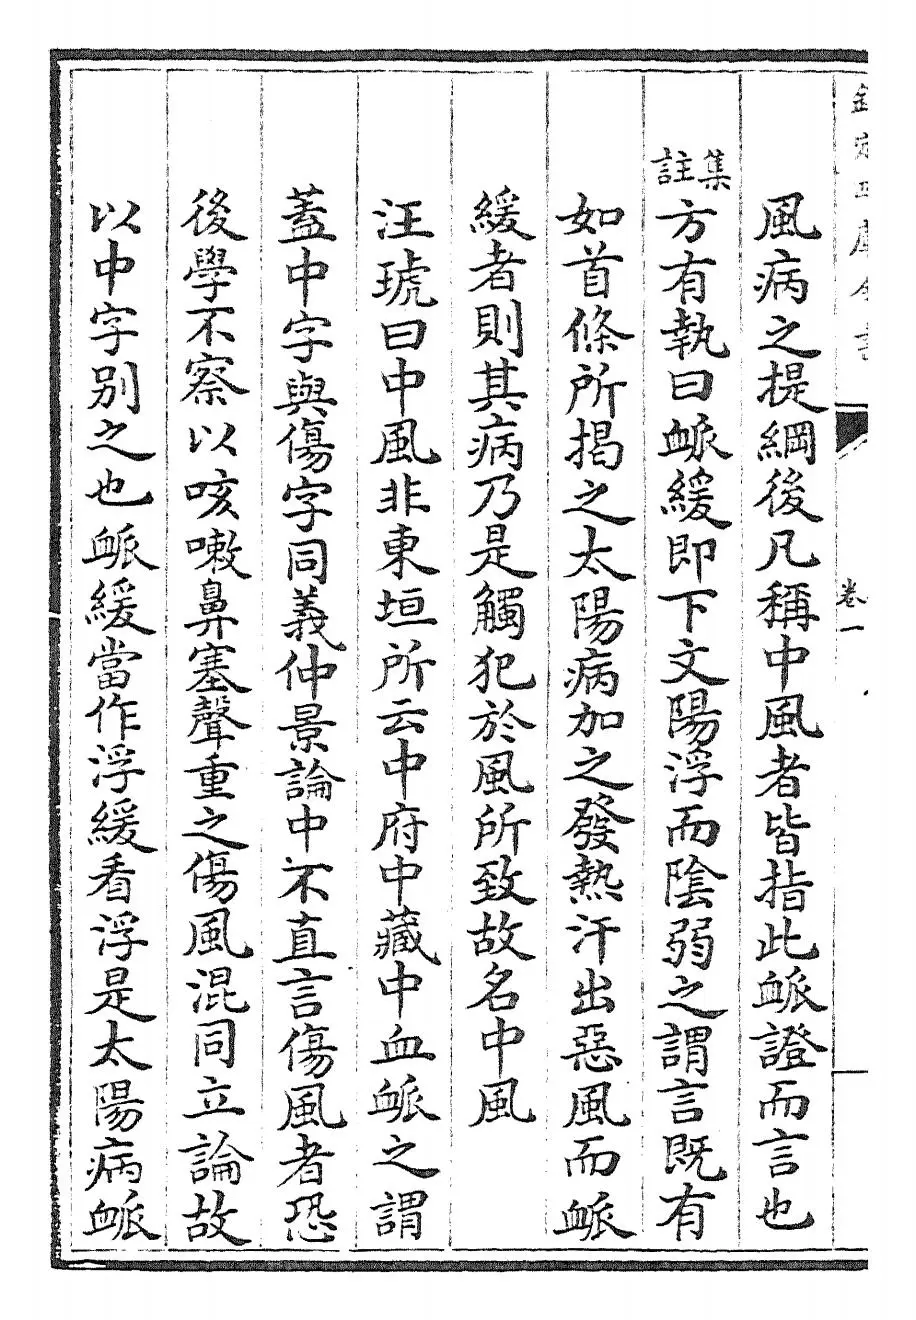 欽定四庫全書
卷一
風病之提綱後凡稱中風者皆指此衇證而言也
集註方有執曰衇緩即下文陽浮而陰弱之謂言既有
如首條所揭之太陽病加之發熱汗出惡風而衇
緩者則其病乃是觸犯於風所致故名中風
汪琥曰中風非東垣所云中府中藏中血衇之謂
蓋中字與傷字同義仲景論中不直言傷風者恐
後學不察以咳嗽鼻塞聲重之傷風混同立論故
以中字別之也衇緩當作浮緩看浮是太陽病衇